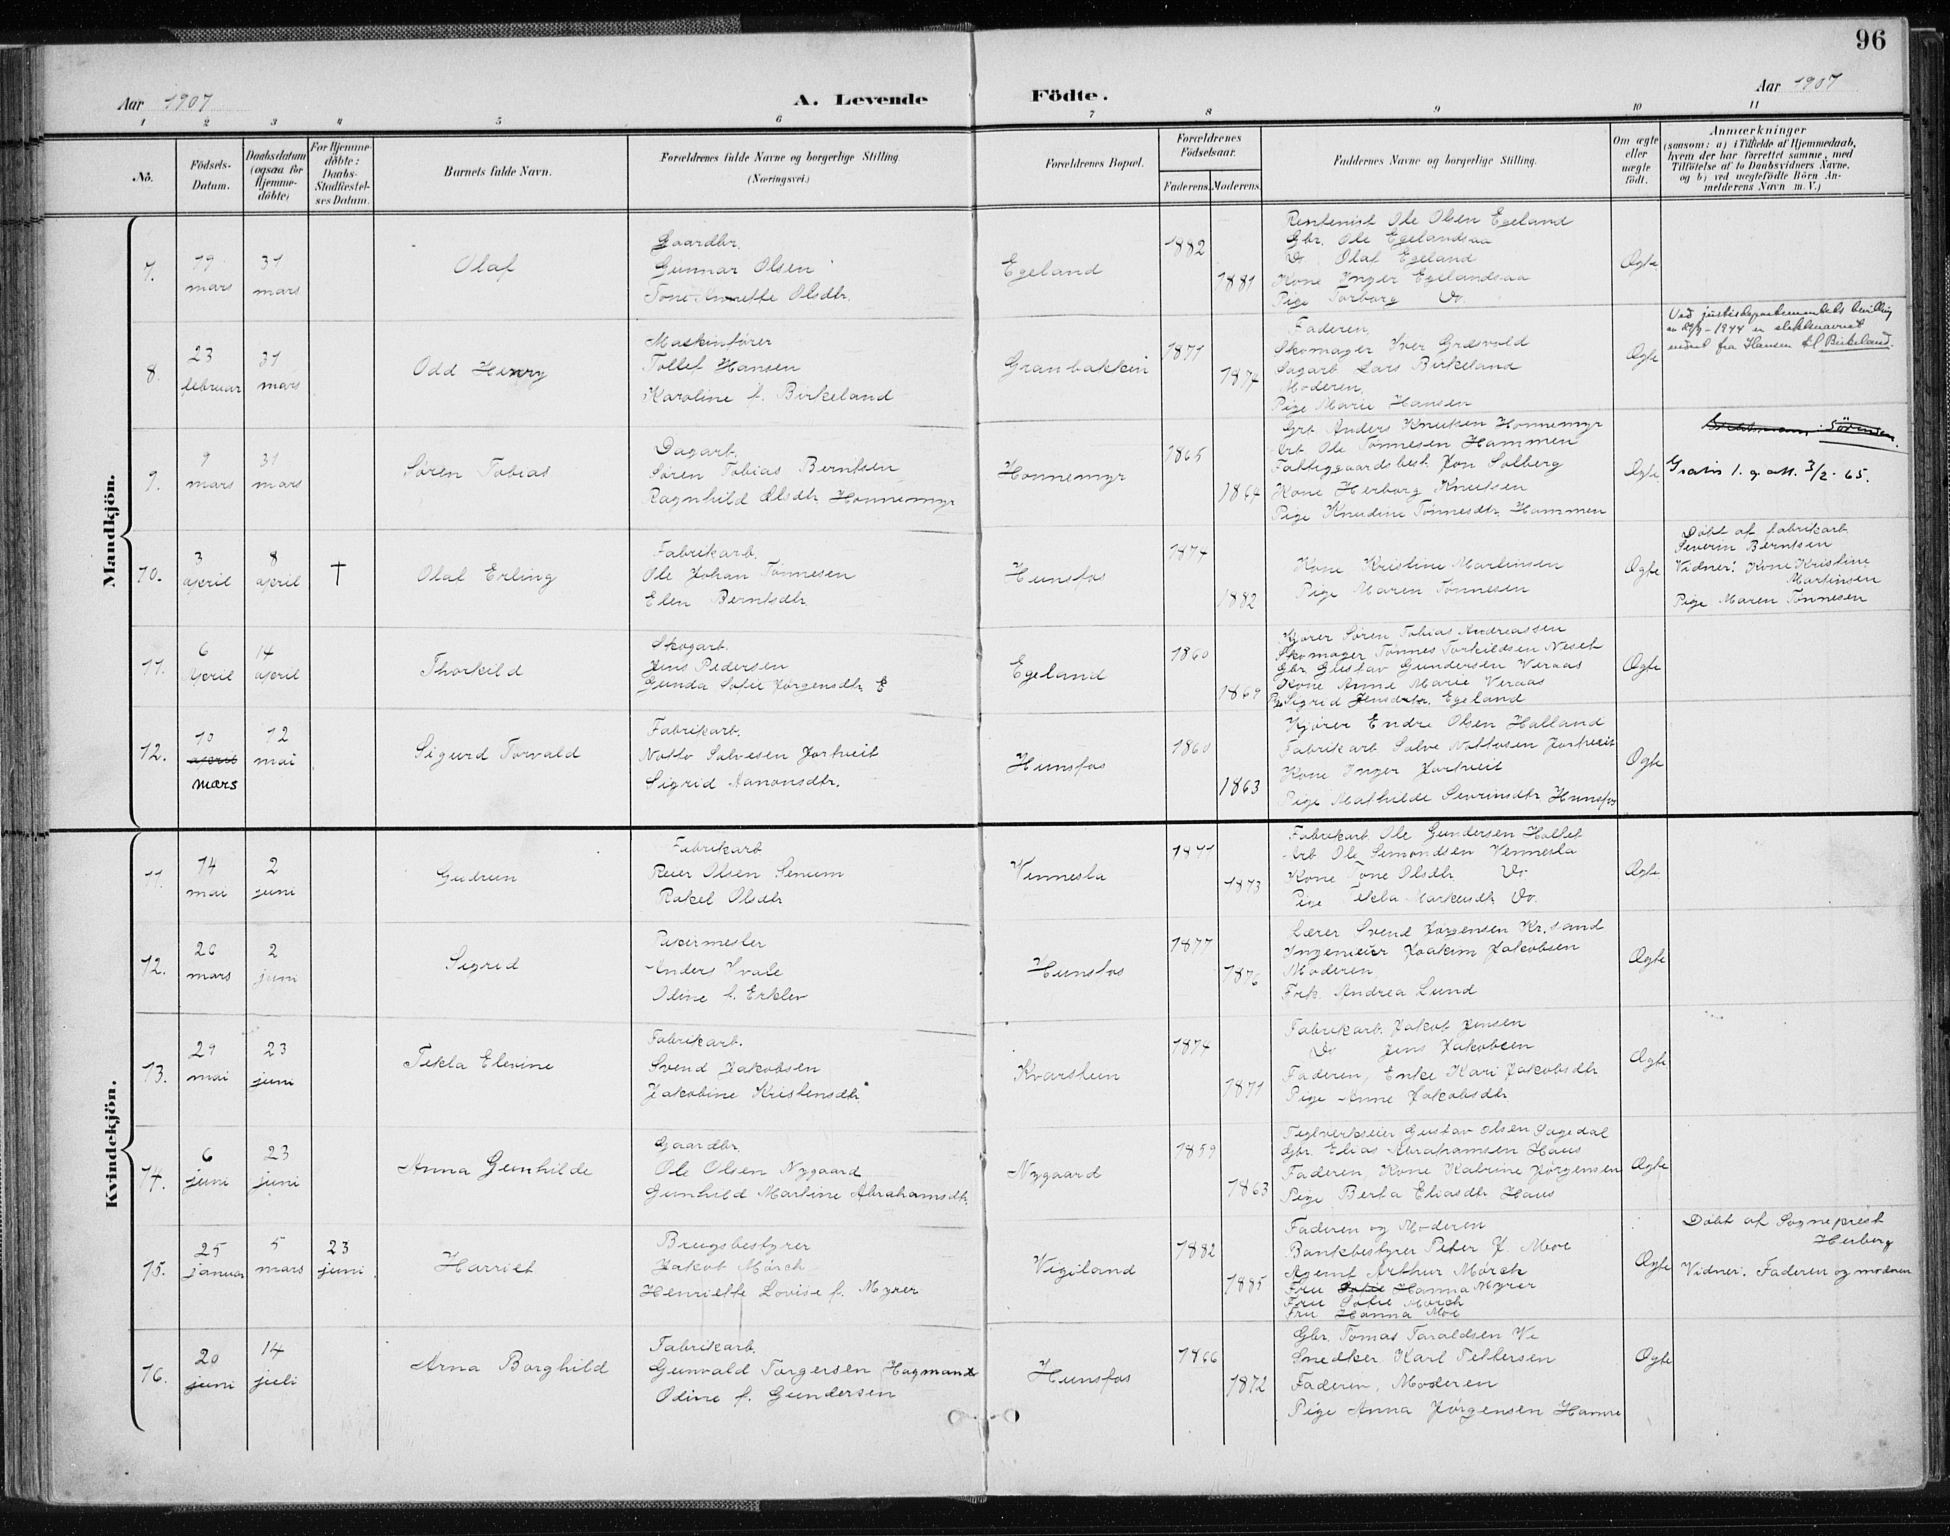 96
Aar 1907
A. Levende Födte.
Aar 1907
1 2 3 4 5 6 7 8 9 10 11
No.
Födsels-Datum.
Daabsdatum (ogsaa for Hjemme-döbte)
For Hjemme-döbte: Daabs-Stadfæstel-ses Datum.
Barnets fulde Navn.
Forældrenes fulde Navne og borgerlige Stilling (Næringsvei.)
Forældrenes Bopæl.
Forældrenes Födselsaar.
Faderens. Moderens.
Faddernes Navne og borgerlige Stilling.
Om ægte eller uægte födt.
Anmærkninger
(saasom: a) i Tilfælde af Hjemmedaab, hvem der har forrettet samme, med Tilföielse af to Daabsvidners Navne, og b) ved uægtefödte Börn An-melderens Navn m. V.)
Mandkjön.
7.
19 mars
31 mars
Olaf
Gaardbr.
Gunnar Olsen
Tone Annette Olsdtr.
Egeland
1882
1881
Rentenist Ole Olsen Egeland
Gbr. Ole Egelandsaa
Do Olaf Egeland
Kone Inger Egelandsaa
Pige Torborg Do
Ægte
8.
23 februar
31 mars
Odd Henry
Maskinfører
Tollef Hansen
Karoline f. Birkeland
Granbakken
1871
1874
Faderen,
Skomager Iver Græsvold
Sagarb. Lars Birkeland
Moderen,
Pige Marie Hansen
Ægte
Ved justisdepartementets bevilling
1944 er slektsnavnet
endret fra Hansen til Birkeland.
9.
9 mars
31 mars
Søren Tobias
Dagarb.
Søren Tobias Berntsen
Ragnhild Olsdtr Honnemyr
Honnemyr
1865
1864
Grb. Anders Knutsen Honnemyr
Arb. Ole Tønnesen Hammen
Fattiggaardsbest. Jon Solberg
Kone Herborg Knutsen
Pige Knudine Tønnesdtr. Hammen
Ægte
Sörensen.
Gratis 1. g. att. 3/2-65.
10.
3 april
8 april
†
Olaf Erling
Fabrikarb.
Ole Johan Tønnesen
Elen Berntsdtr
Hunsfos
1874
1882
Kone Kristine Martinsen
Pige Maren Tønnesen
Ægte
Døbt af fabrikarb.
Severin Berntsen
Vidner: Kone Kristine
Martinsen
Pige Maren Tønnesen
11.
6 april
14 april
Thorkild
Skogarb.
Jens Pedersen
Gunda Sofie Jørgensdtr E
Egeland
1860
1869
Kjører Søren Tobias Andreassen
Skomager Tønnes Torkildsen Neset
Gbr. Gustav Gundersen Veraas
Kone Anne Marie Veraas
Pge Sigrid Jensdtr. Egeland
Ægte
12.
10 april mars
12 mai
Sigurd Torvald
Fabrikarb.
Notto Salvesen Jortveit
Sigrid Aanonsdtr.
Hunsfos
1860
1863
Kjører Endre Olsen Halland
Fabrikarb Salve Nottosen Jortveit
Kone Inger Jortveit
Pige Mathilde Sevrinsdtr Hunsfos
Ægte
Kvindekjön.
11.
14 mai
2 juni
Gudrun
Fabrikarb
Reier Olsen Senum
Rakel Olsdtr
Vennesla
1871
1873
Fabrikarb. Ole Gundersen Hallet
Arb Ole Simondsen Vennesla
Kone Tone Olsdtr Do
Pige Tekla Markusdtr Do.
Ægte
12.
26 mars
2 juni
Sigrid
Papirmester
Anders Hvale
Oline f. Erklev
Hunsfos
1877
1876
Lærer Svend Jørgensen Kr.sand
Ingeniør Joakim Jakobsen
Moderen
Frk. Andrea Lund
Ægte
13.
29 mai
23 juni
Tekla Elevine
Fabrikarb.
Svend Jakobsen
Jakobine Kristensdtr
Kvarstein
1874
1871
Fabrikarb. Jakob Jensen
Do Jens Jakobsen
Faderen, Enke Kari Jakobsdtr
Pige Anne Jakobsdtr
Ægte
14.
6 juni
23 juni
Anna Gunhilde
Gaardbr.
Ole Olsen Nygaard
Gunhild Martine Abrahamsdtr.
Nygaard
1859
1863
Teglverkseier Gustav Olsen Sagedal
Gbr. Elias Abrahamsen Haus
Faderen, Kone Katrine Jørgensen
Pige Berta Eliasdtr Haus
Ægte
15.
25 januar
5 mars
23 juni
Harriet
Brugsbestyrer
Jakob Mørch
Henriette Lovise f. Myrer
Vigeland
1882
1885
Faderen og Moderen
Bankbestyrer Peter J. Moe
Agent Arthur Mørch
Fru Sofie Hanna Myrer
Fru Sofie Mørch
Fru Hanna Moe
Ægte
Døbt af Sogneprest
Herberg
Vidner: Faderen og moderen
16.
20 juni
14 juli
Arna Borghild
Fabrikarb.
Gunvald Torgersen (Hagmand
Odine f. Gundersen
Hunsfos
1866
1872
Gbr. Tomas Taraldsen Ve
Snedker Karl Pettersen
Faderen, Moderen
Pige Anna Jørgensen Hamre
Ægte